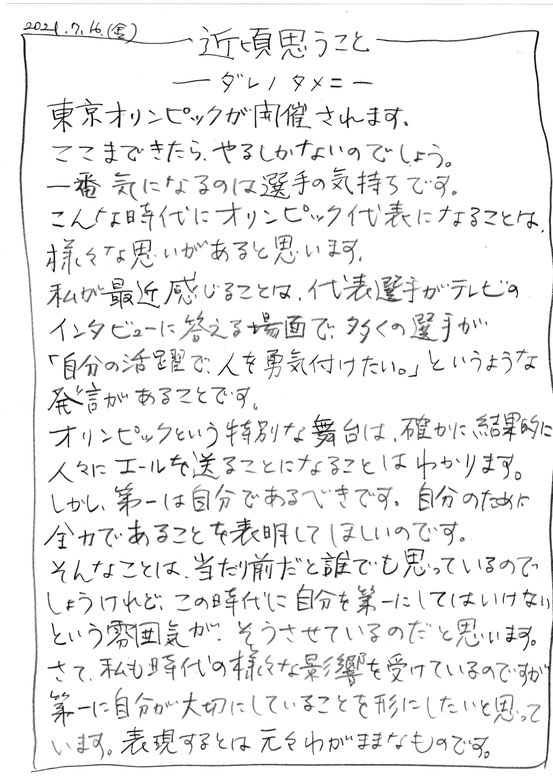 2021.7.16.(金)
近頃思うこと
ーダレノタメニー
東京オリンピックが開催されます、
ここまできたら、やるしかないのでしょう。
一番気になるのは選手の気持ちです。
こんな時代にオリンピック代表になることは、
様々な思いがあると思います、
私が最近感じることは、代表選手がテレビの
インタビューに答える場面で、多くの選手が
「自分の活躍で、人を勇気付けたい。」というような
発言があることです。
オリンピックという特別な舞台は、確かに結果的に
人々にエールを送ることになることはわかります。
しかし、第一は自分であるべきです。自分のために
全力であることを表明してほしいのです。
そんなことは、当たり前だと誰でも思っているので
しょうけれど、この時代に自分を第一にしてはいけない
という雰囲気が、そうさせているのだと思います。
さて、私も時代の様々な影響を受けているのですが
第一に自分が大切にしていることを形にしたいと思って
います。表現するとは元々わがままなものです。